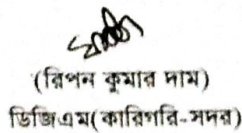 (রিপন কুমার দাম)
ডিজিএম(কারিগরি-সদর)